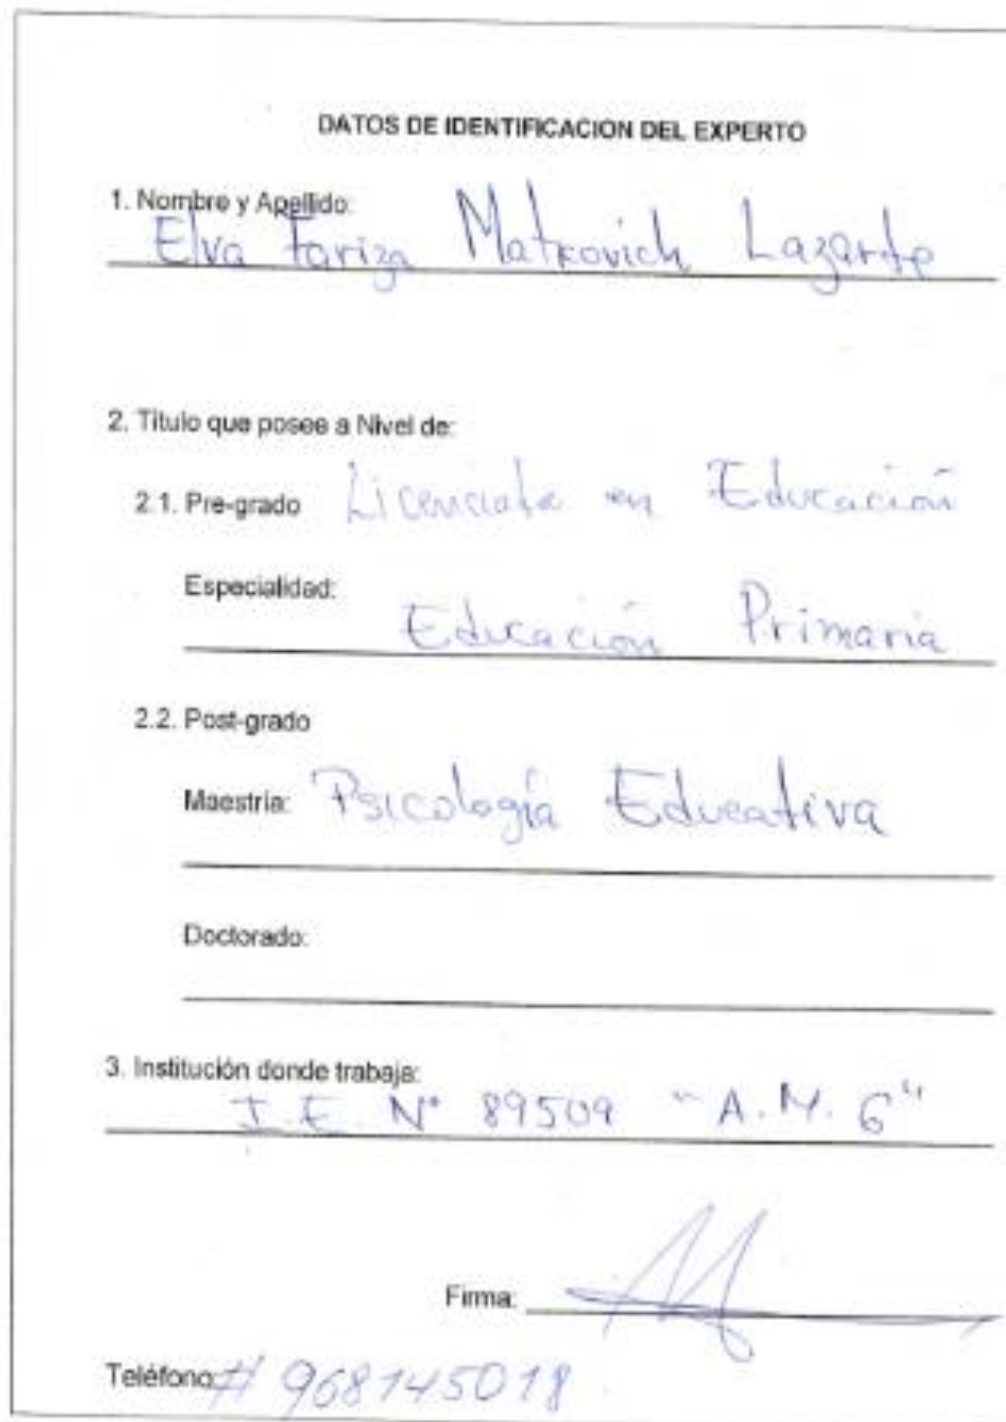 DATOS DE IDENTIFICACION DEL EXPERTO
1. Nombre y Apellido:
Elva Fariza Matkovich Lazarte
2. Titulo que posee a Nivel de:
2.1. Pre-grado Licenciada en Educación
Especialidad:
Educación Primaria
2.2. Post-grado
Maestria: Psicología Educativa
Doctorado:
3. Institución donde trabaja:
I.E. N° 89509 "A.M. G"
Firma:
Teléfono: # 968145018